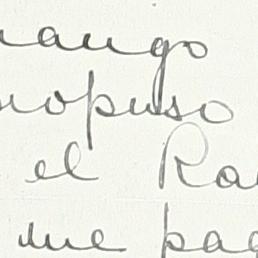 mango
mopuso
el Ra
me pag